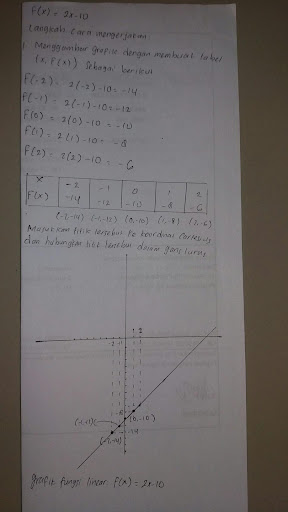 F(x) = 2x-10
Langkah cara mengerjakan
1 Menggambar grafik dengan membuat tabel
(x, F(x)) sebagai berikut
F(-2) = 2(-2)-10 = -14
F(-1) = 2(-1)-10 = -12
F(0) = 2(0)-10 = -10
F(1) = 2(1)-10 = -8
F(2) = 2(2)-10 = -6
x -2 -1 0 1 2
F(x) -14 -12 -10 -8 -6
(-2,-14) (-1,-12) (0,-10) (1,-8) (2,-6)
Masukkan titik tersebut ke koordinat Cartesius
dan hubungkan titik tersebut dalam garis lurus
-2 -1 1 2
(0,-10)
-14
(-2,-14)
grafik fungsi linear F(x) = 2x-10